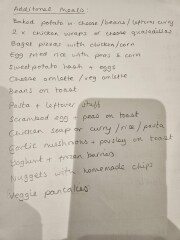 Additional meals:
Baked potato + cheese/beans/leftover curry
2 x chicken wraps or cheese quesadillas
Bagel pizzas with chicken/corn
Egg fried rice with peas & corn
Sweet potato hash + eggs
Cheese omlette/veg omlette
Beans on toast
Pasta + leftover stuff
Scrambled egg + peas on toast
Chicken soup or curry/rice/pasta
Garlic mushrooms + parsley on toast
Yoghurt + frozen berries
Nuggets with homemade chips
Veggie pancakes